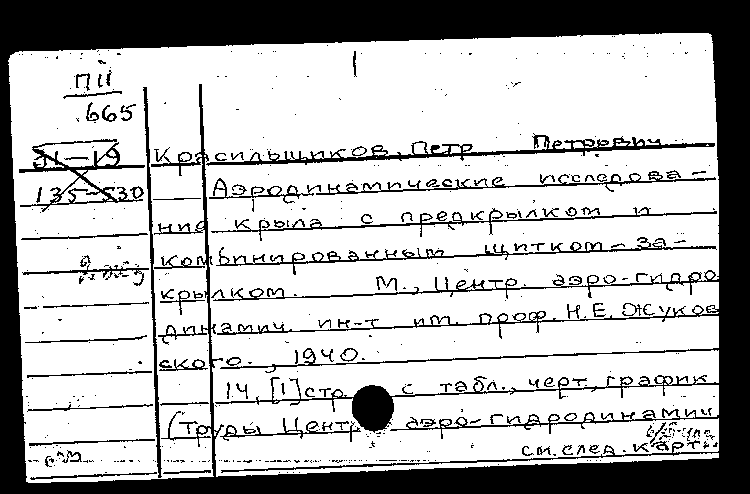 П II
665
31-19
135-530
Красильщиков, Петр Петрович
Аэродинамические исследова-
ние крыла с предкрылком и
комбинированным щитком-за-
крылком. М., Центр. аэро-гидро
динамич. ин-т им. проф. Н.Е. Жуков
ского., 1940.
14, [1] стр. с табл., черт, график.
(Труды Центр. аэро-гидродинамич.
см. след. карт.